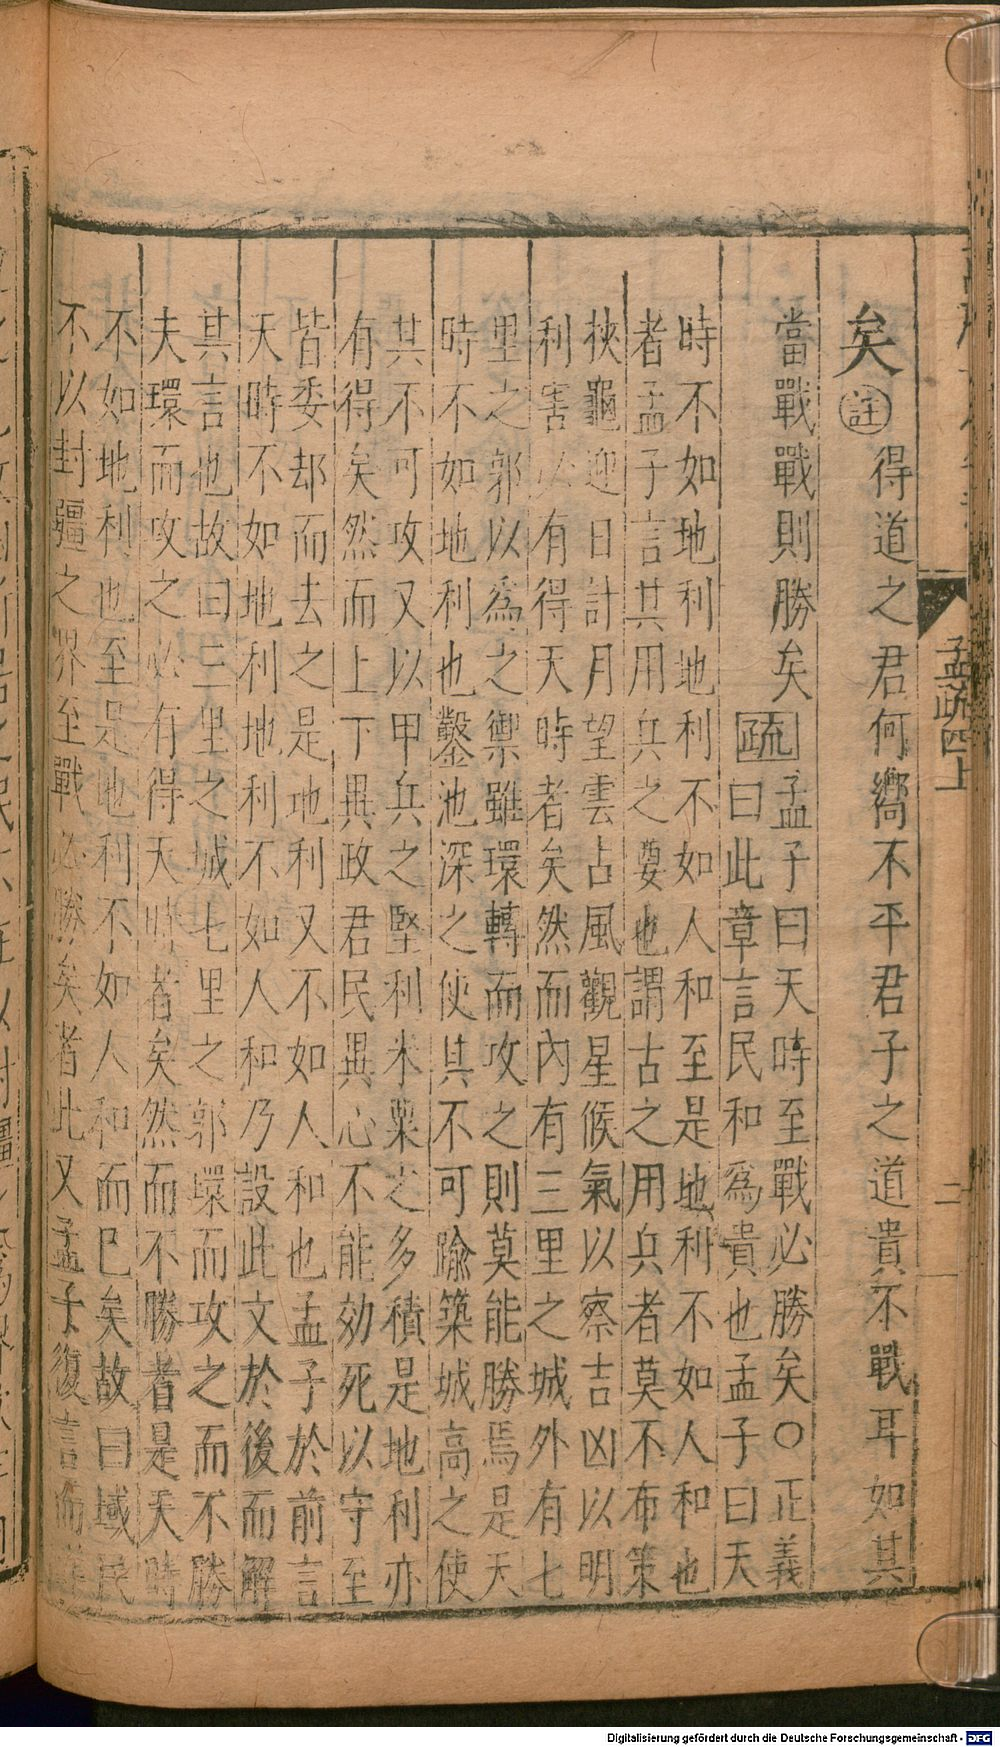 矣㊟得道之君何嚮不平君子之道貴不戰耳如其
當戰戰則勝矣疏孟子曰天時至戰必勝矣○正義
曰此章言民和爲貴也孟子曰天
時不如地利地利不如人和至是地利不如人和也
者孟子言其用兵之要也謂古之用兵者莫不布策
挾龜迎日計月望雲占風觀星候氣以察吉凶以明
利害必有得天時者矣然而內有三里之城外有七
里之郭以爲之禦雖環轉而攻之則莫能勝焉是天
時不如地利也鑿池深之使其不可踰築城高之使
其不可攻又以甲兵之堅利米粟之多積是地利亦
有得矣然而上下異政君民異心不能効死以守至
皆委却而去之是地利又不如人和也孟子於前言
天時不如地利地利不如人和乃設此文於後而解
其言也故曰三里之城七里之郭環而攻之而不勝
夫環而攻之必有得天時者矣然而不勝者是天時
不如地利也至是地利不如人和而巳矣故曰域民
不以封疆之界至戰必勝矣者此又孟子復言而
孟疏四上
二
Digitalisierung gefördert durch die Deutsche Forschungsgemeinschaft - DFG